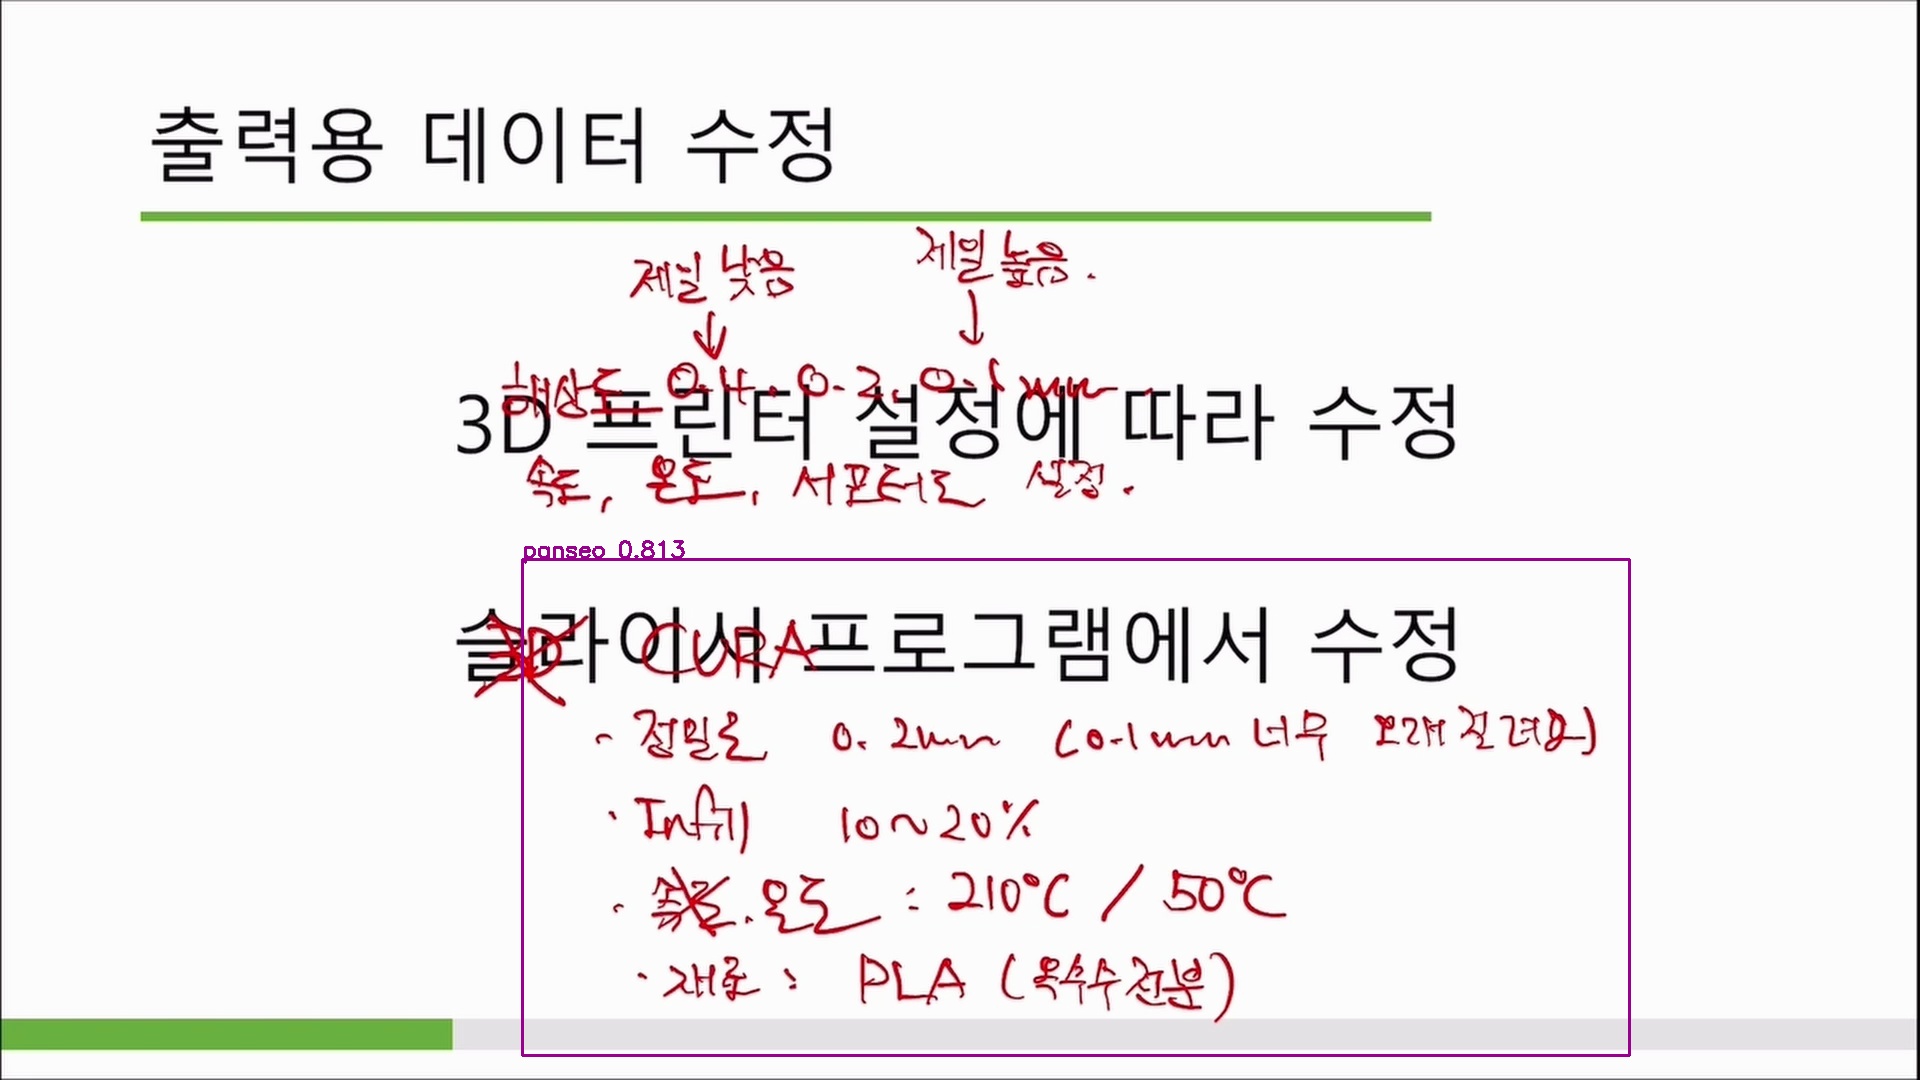 출력용 데이터 수정
제일 낮음 제일 높음.
↓ ↓
해상도 0.4. 0.2. 0.1mm
3D 프린터 설정에 따라 수정
속도, 온도, 서포터도 설정.
panseo 0.813
슬라이서 프로그램에서 수정
3D CURA
- 정밀도 0.2mm (0.1mm 너무 오래 걸려요)
· Infill 10~20%
· 속도. 온도 : 210°C / 50°C
· 재료 : PLA (옥수수 전분)